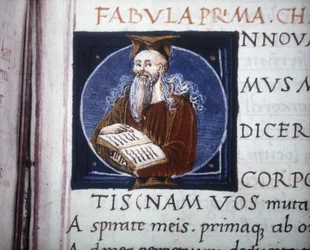 FABULA PRIMA. CH
NNOVA
MUS M
DICER
CORPO
TIS(NAM VOS muta
A spirate meis. primaq ab o